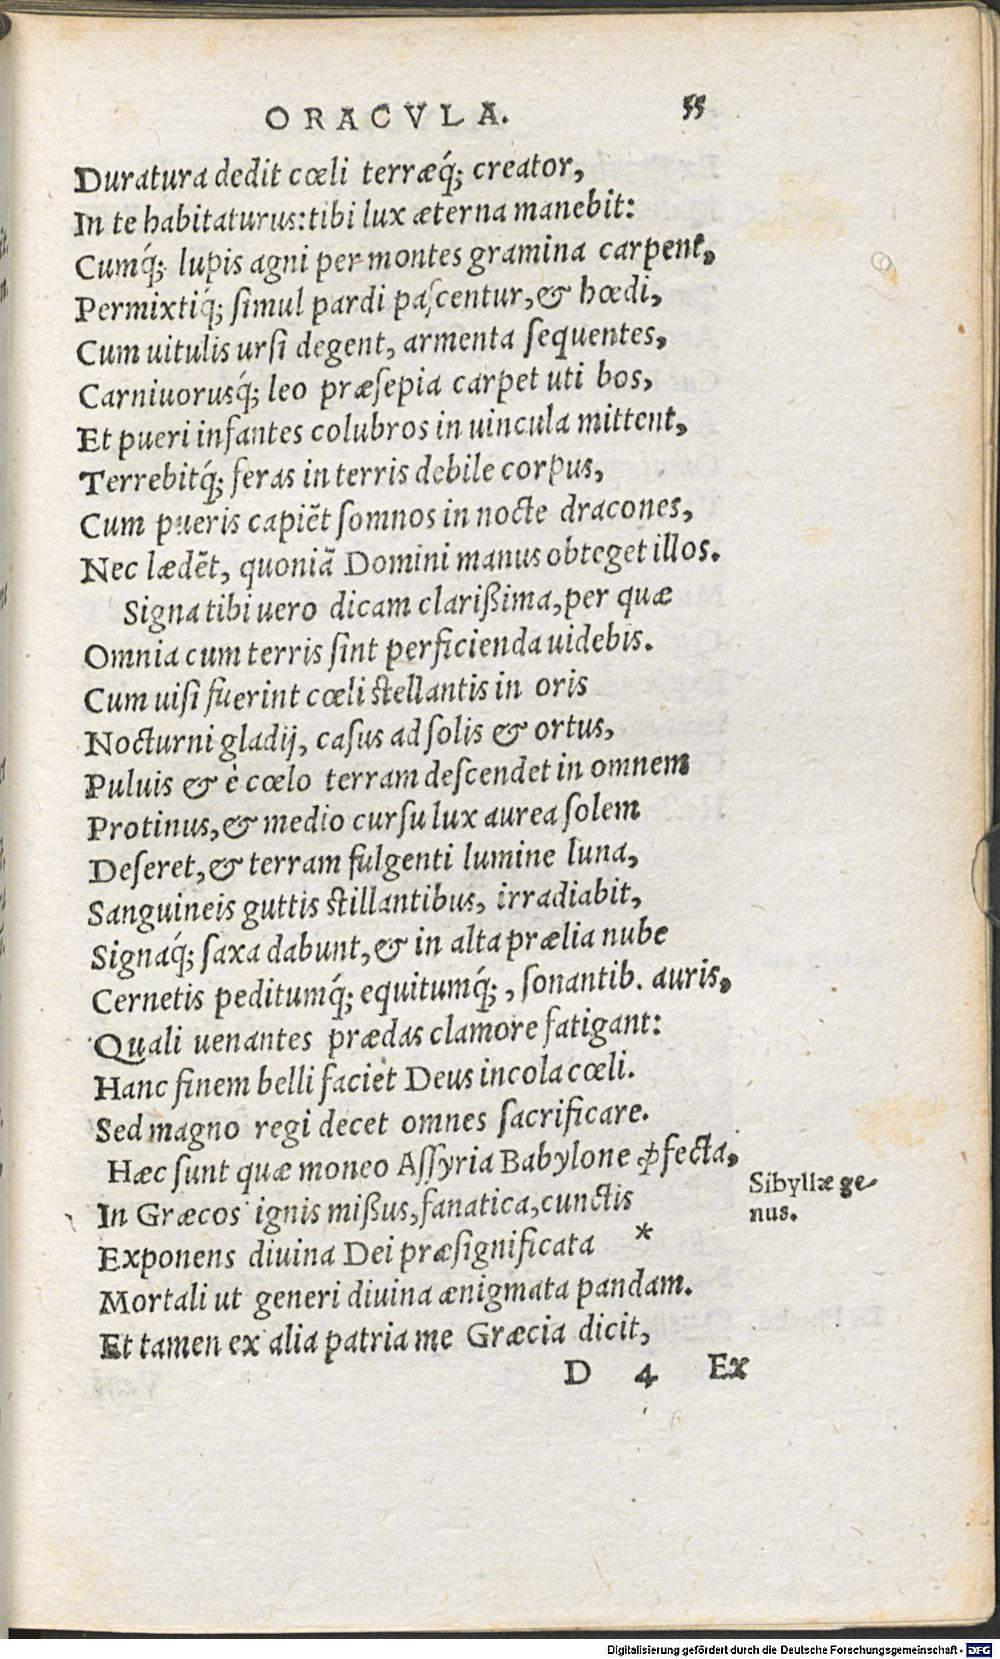 ORACVLA. 55
Duratura dedit cœli terræq́; creator,
In te habitaturus: tibi lux æterna manebit:
Cumq́; lupis agni per montes gramina carpent,
Permixtiq́; ſimul pardi paſcentur, & hœdi,
Cum uitulis urſi degent, armenta ſequentes,
Carniuorusq́; leo præſepia carpet uti bos,
Et pueri infantes colubros in uincula mittent,
Terrebitq́; feras in terris debile corpus,
Cum pueris capiẽt ſomnos in nocte dracones,
Nec lædẽt, quoniã Domini manus obteget illos.
Signa tibi uero dicam clarißima, per quæ
Omnia cum terris ſint perficienda uidebis.
Cum uiſi fuerint cœli ſtellantis in oris
Nocturni gladij, caſus ad ſolis & ortus,
Puluis & è cœlo terram deſcendet in omnem
Protinus, & medio curſu lux aurea ſolem
Deſeret, & terram fulgenti lumine luna,
Sanguineis guttis ſtillantibus, irradiabit,
Signaq́; ſaxa dabunt, & in alta prælia nube
Cernetis peditumq́; equitumq́;, ſonantib. auris,
Quali uenantes prædas clamore fatigant:
Hanc finem belli faciet Deus incola cœli.
Sed magno regi decet omnes ſacrificare.
Hæc ſunt quæ moneo Aſſyria Babylone ꝓfecta,
In Græcos ignis mißus, fanatica, cunctis
Exponens diuina Dei præſignificata *
Mortali ut generi diuina ænigmata pandam.
Et tamen ex alia patria me Græcia dicit,
Sibyllæ ge-
nus.
D 4 Ex
Digitalisierung gefördert durch die Deutsche Forschungsgemeinschaft - DFG